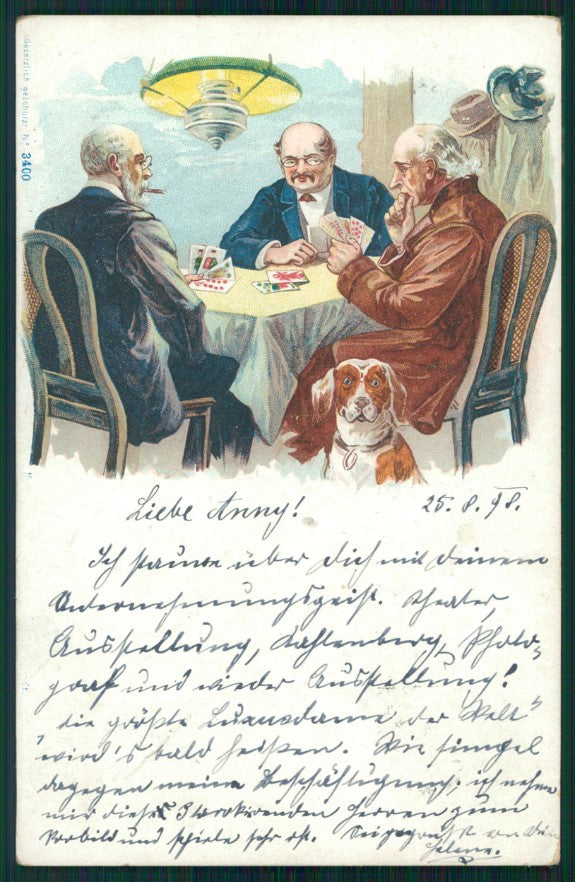 Gesetzlich geschützt N° 3400
Liebe Anny! 25. 8. 98.
Ich staune über dich mit deinem
Unternehmungsgeist. Theater,
Ausstellung, Kahlenberg, Photo-
graf und wieder Ausstellung!
„die größte Luxusdame der Welt"
wird's bald heißen. Wie simpel
dagegen meine Beschäftigung; ich nehme
mir diese 3 tarokirenden Herren zum
Vorbild und spiele sehr oft. Sei gegrüßt von dein
Helene.